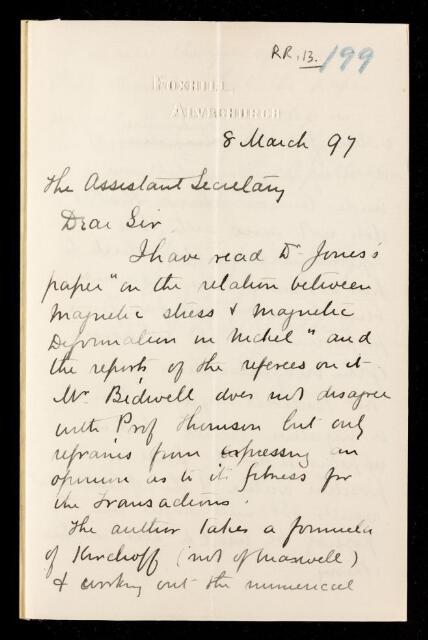 RR.13./199
FOXHILL,
ALVECHURCH
8 March 97
The Assistant Secretary
Dear Sir
I have read Dr Jones's
paper "on the relation between
Magnetic stress & Magnetic
Deformation in Nickel" and
the reports of the referees on it
Mr Bidwell does not disagree
with Prof Thomson but only
refrains from expressing an
opinion as to its fitness for
the Transactions.
The author takes a formula
of Kirchoff (not of Maxwell)
& working out the numerical